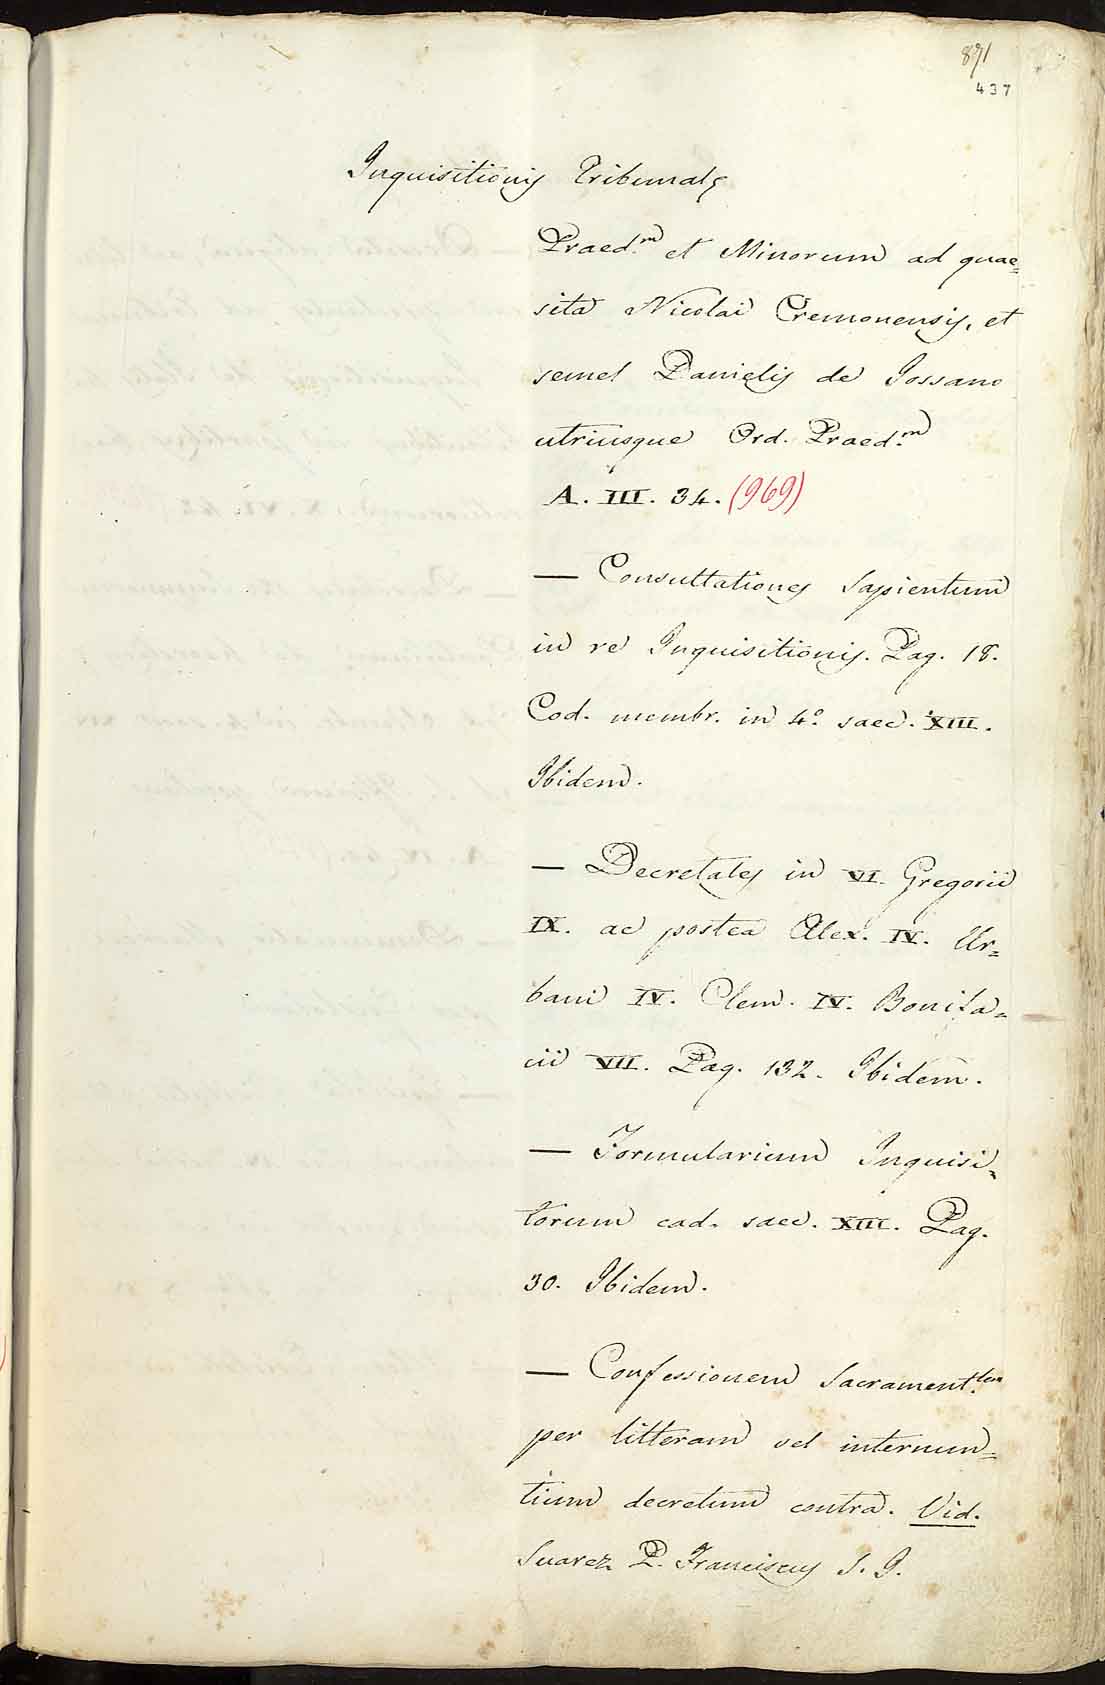 871
437
Inquisitionis Tribunale
Praed.m et Minorum ad quae=
sita Nicolai Cremonensis, et
semel Danielis de Iossano
utriusque Ord. Praed.m
A. III. 34. (969)
— Consultationes Sapientum
in re Inquisitionis. Pag. 18.
Cod. membr. in 4.o saec. XIII.
Ibidem.
— Decretales in VI. Gregorii
IX. ac postea Alex. IV. Ur=
bani IV. Clem. IV. Bonifa=
cii VII. Pag. 132. Ibidem.
— Formularium Inquisi=
torum cad. saec. XIII. Pag.
30. Ibidem.
— Confessionem Sacrament.lem
per litteram vel internun=
tium decretum contra. Vid.
Suarez P. Franciscus S. I.